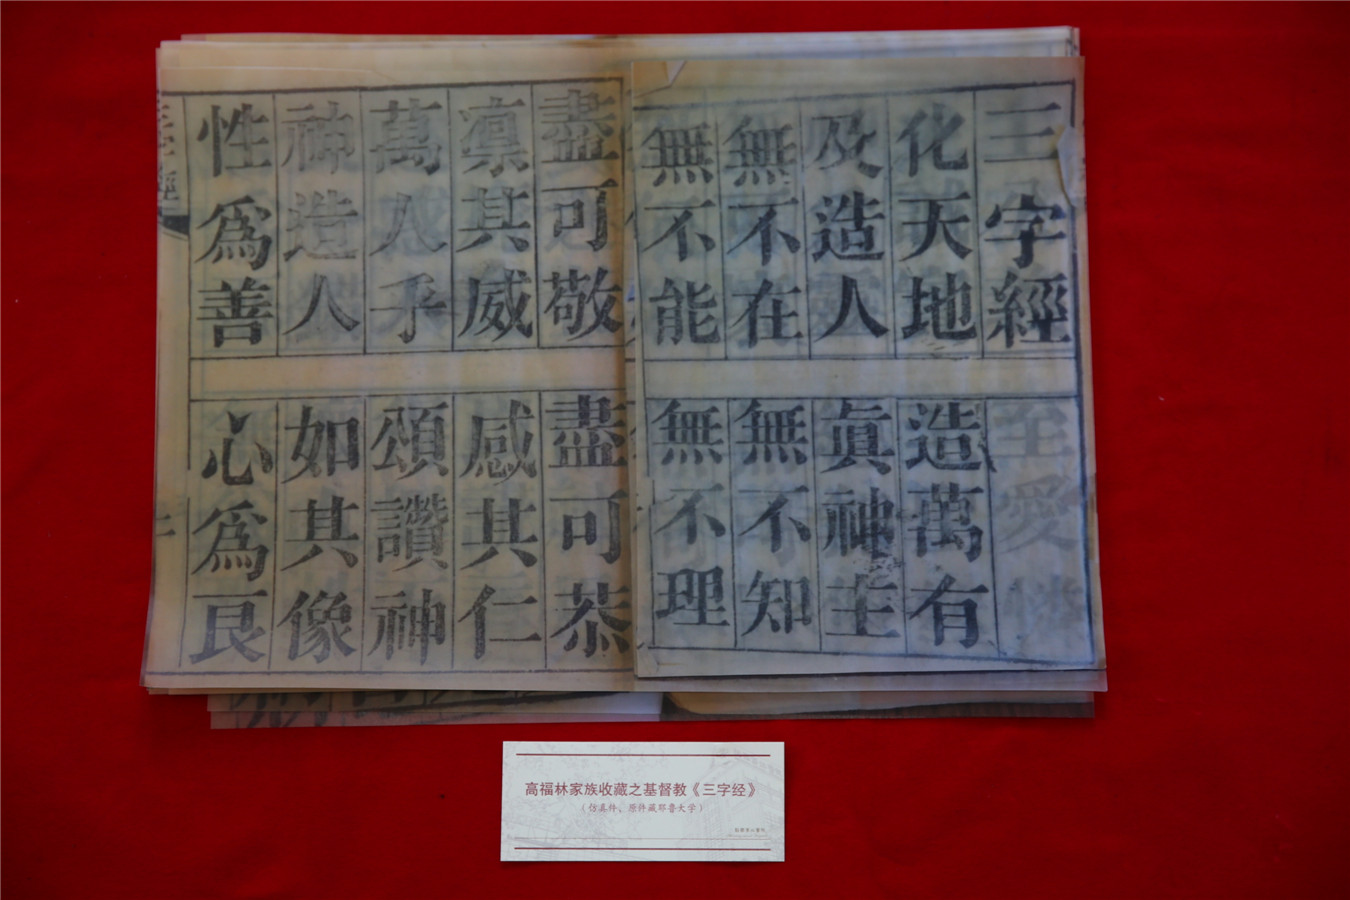 三字經
化天地 造萬有
及造人 眞神主
無不在 無不知
無不能 無不理
盡可敬 盡可恭
凛其威 感其仁
萬人乎 頌讚神
神造人 如其像
性爲善 心爲良
高福林家族收藏之基督教《三字经》
（仿真件，原件藏耶鲁大学）